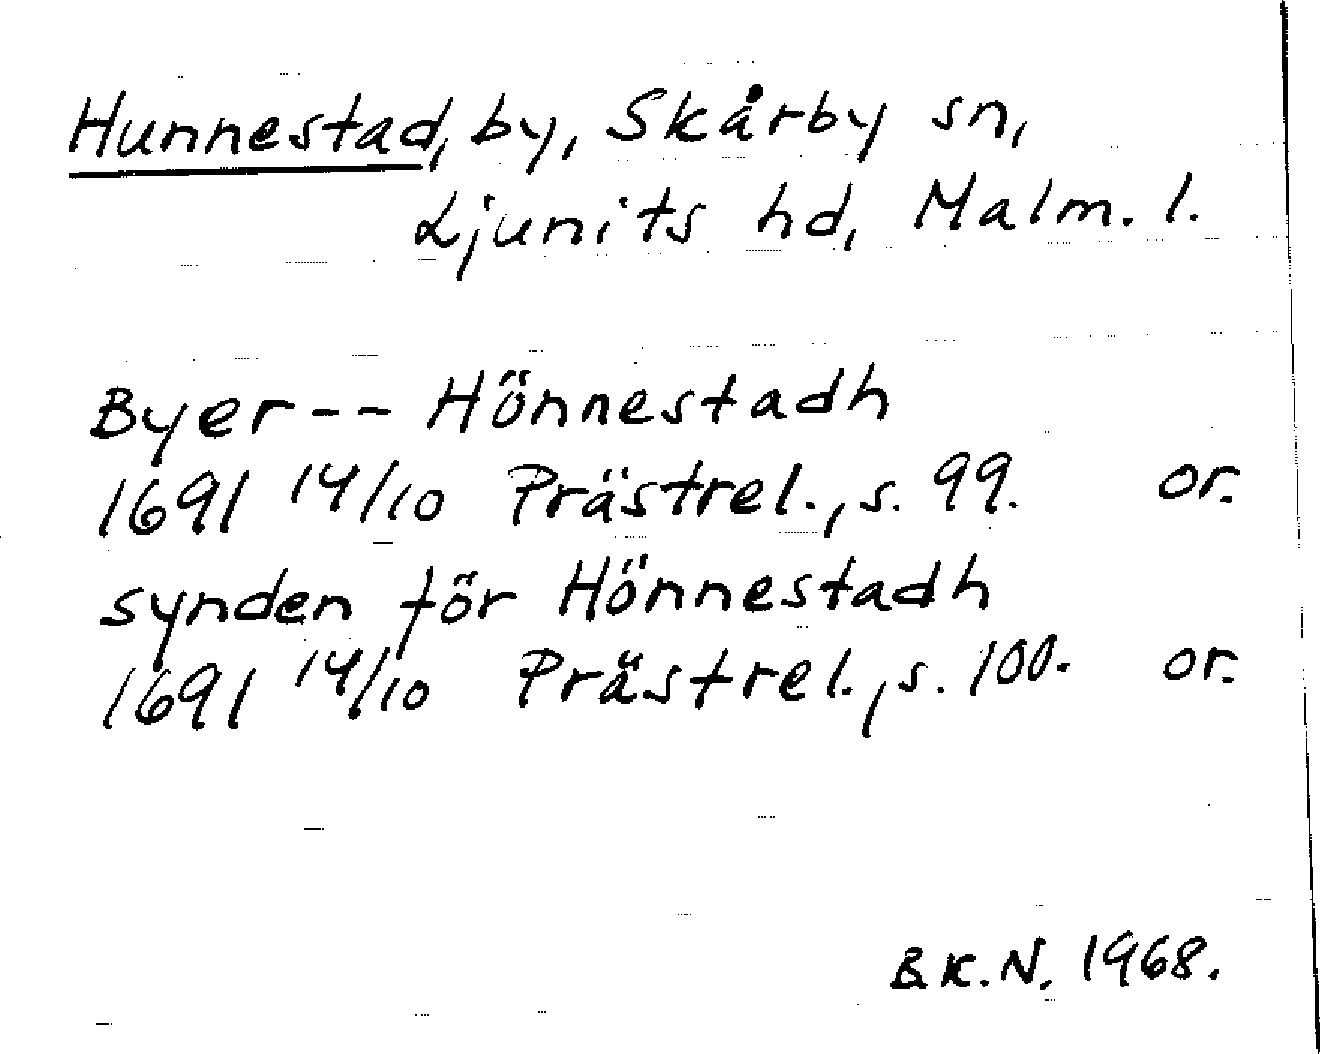 Hunnestad, by, Skårby sn,
Ljunits hd, Malm. l.
Byer -- Hönnestadh
1691 14/10 Prästrel., s. 99. or.
synden för Hönnestadh
1691 14/10 Prästrel., s. 100. or.
B.K.N. 1968.